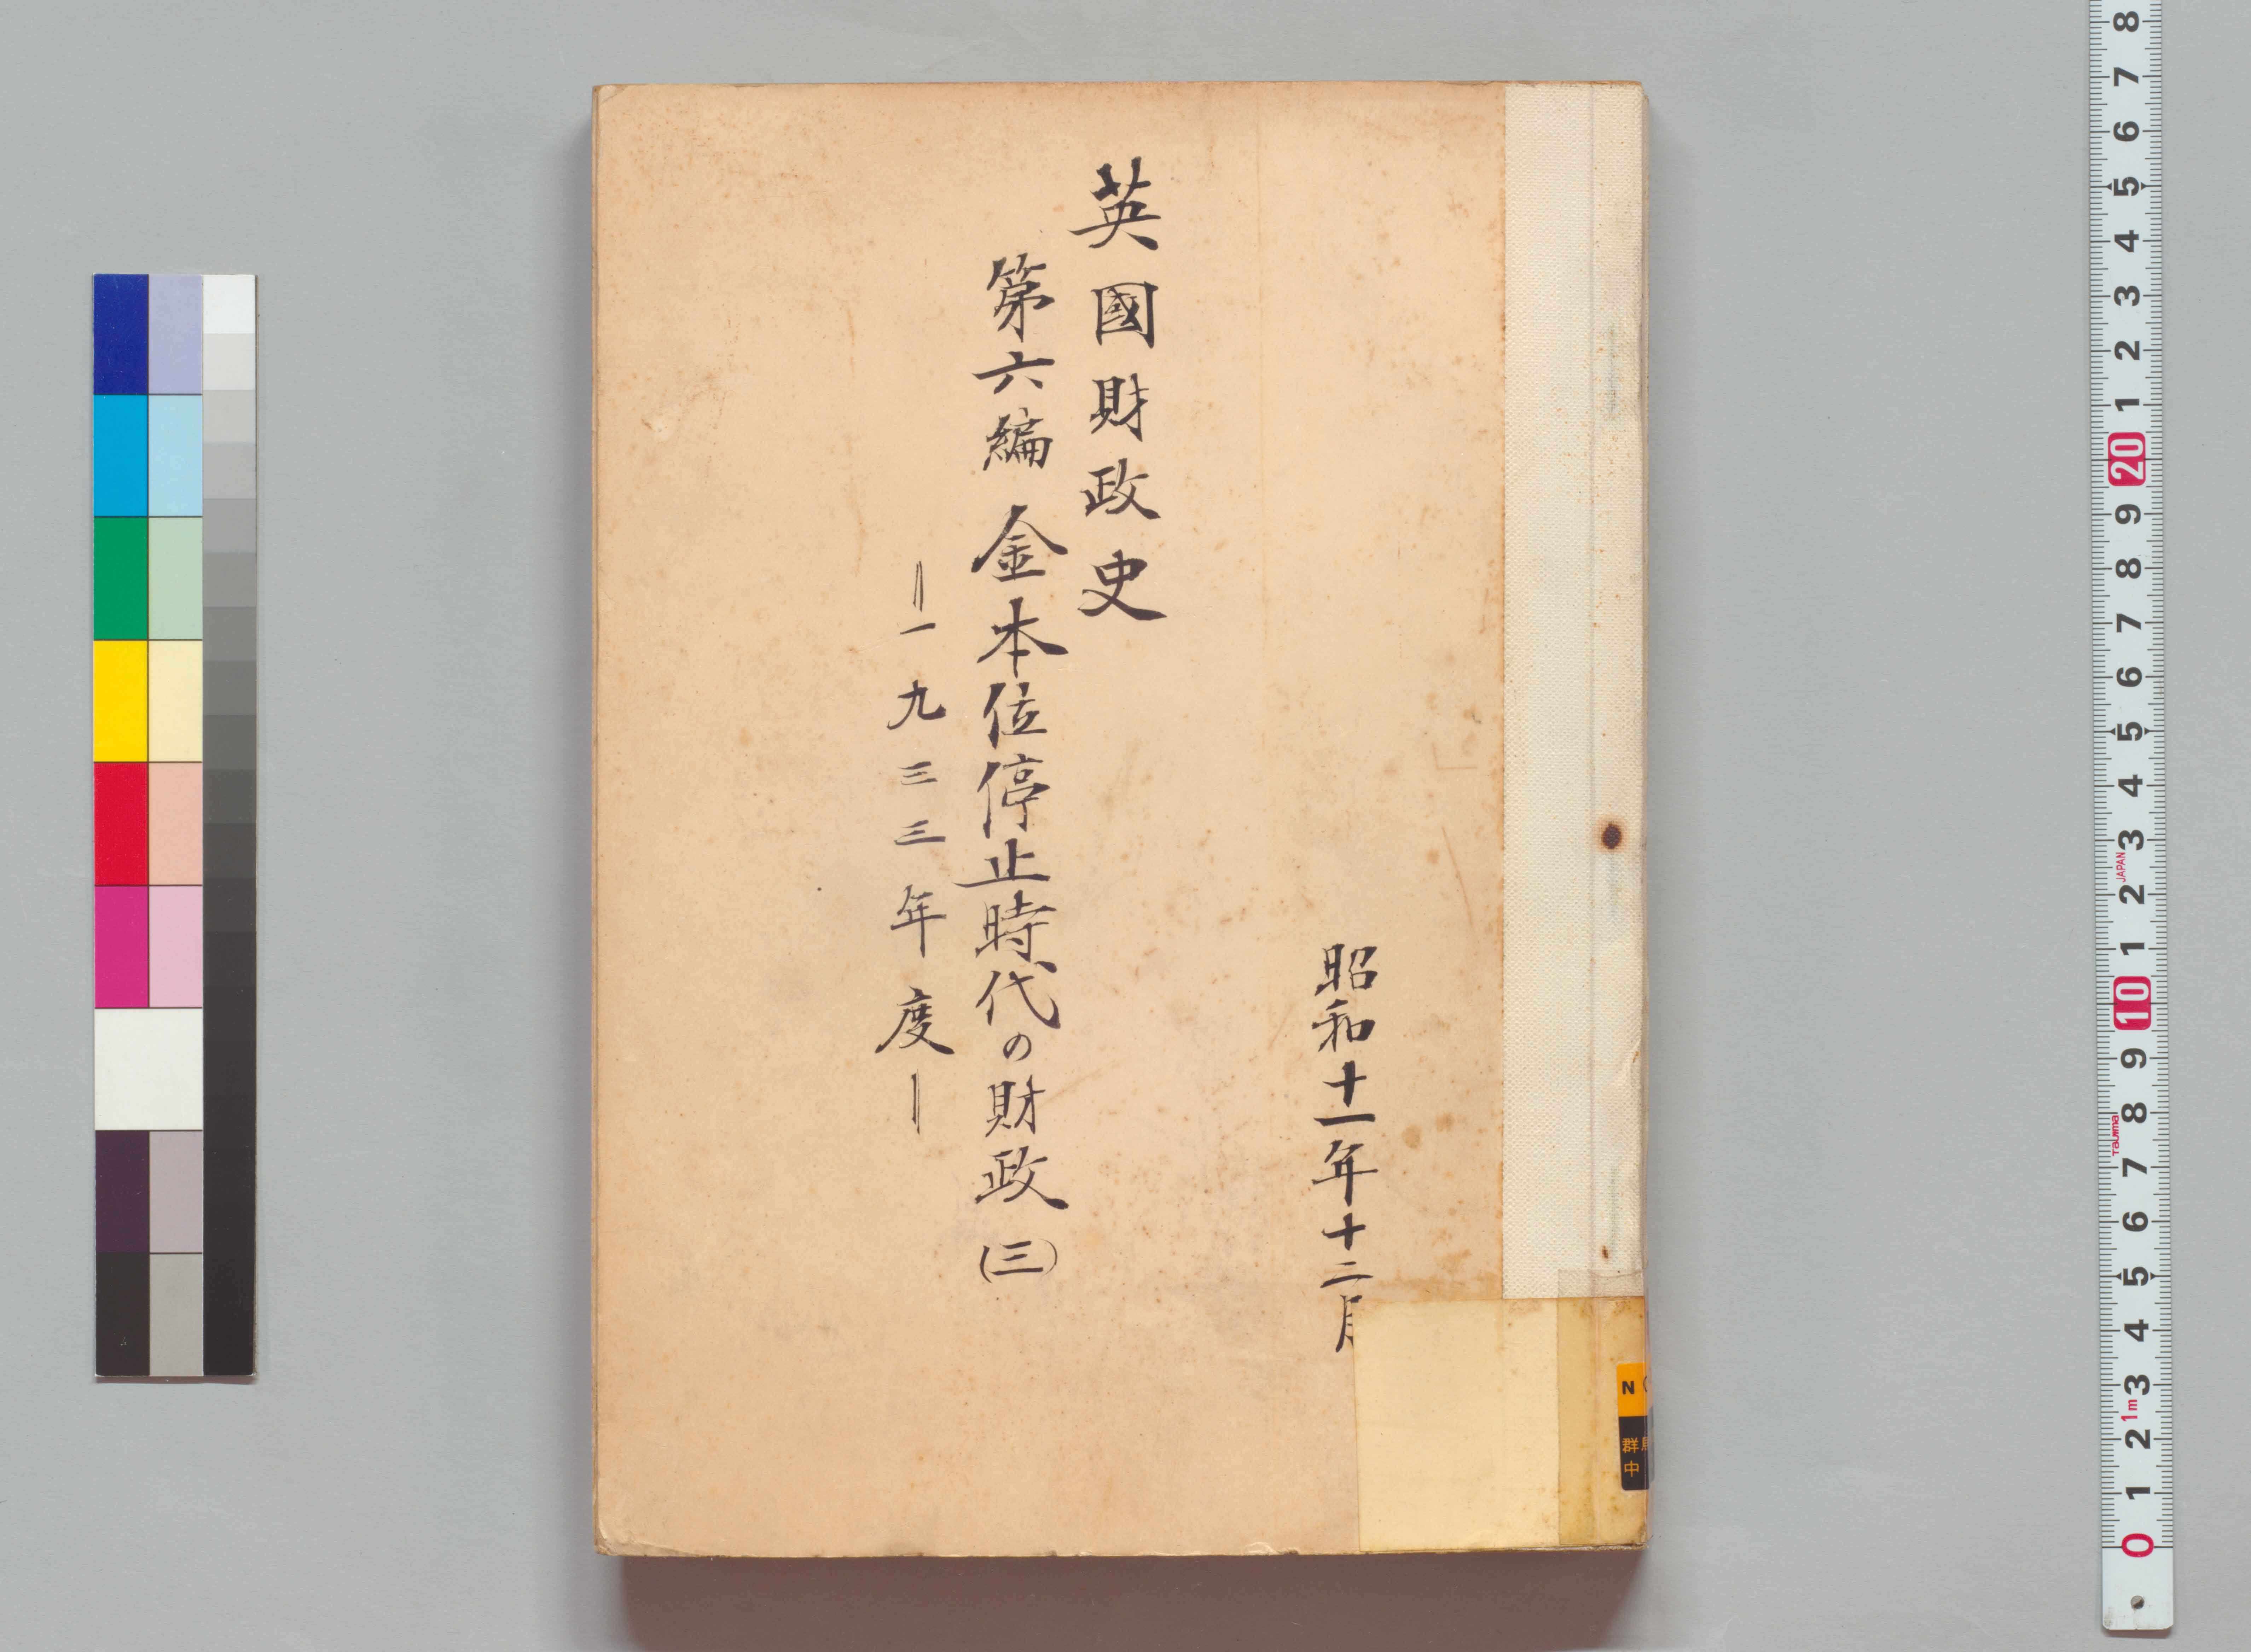 昭和十一年十二月
英國財政史
第六編 金本位停止時代の財政(三)
=一九三三年度=
N
群馬
中
8
7
6
5
4
3
2
1
20
9
8
7
6
5
4
3
JAPAN
2
1
10
9
8
Tajima
7
6
5
4
3
1m
2
1
0